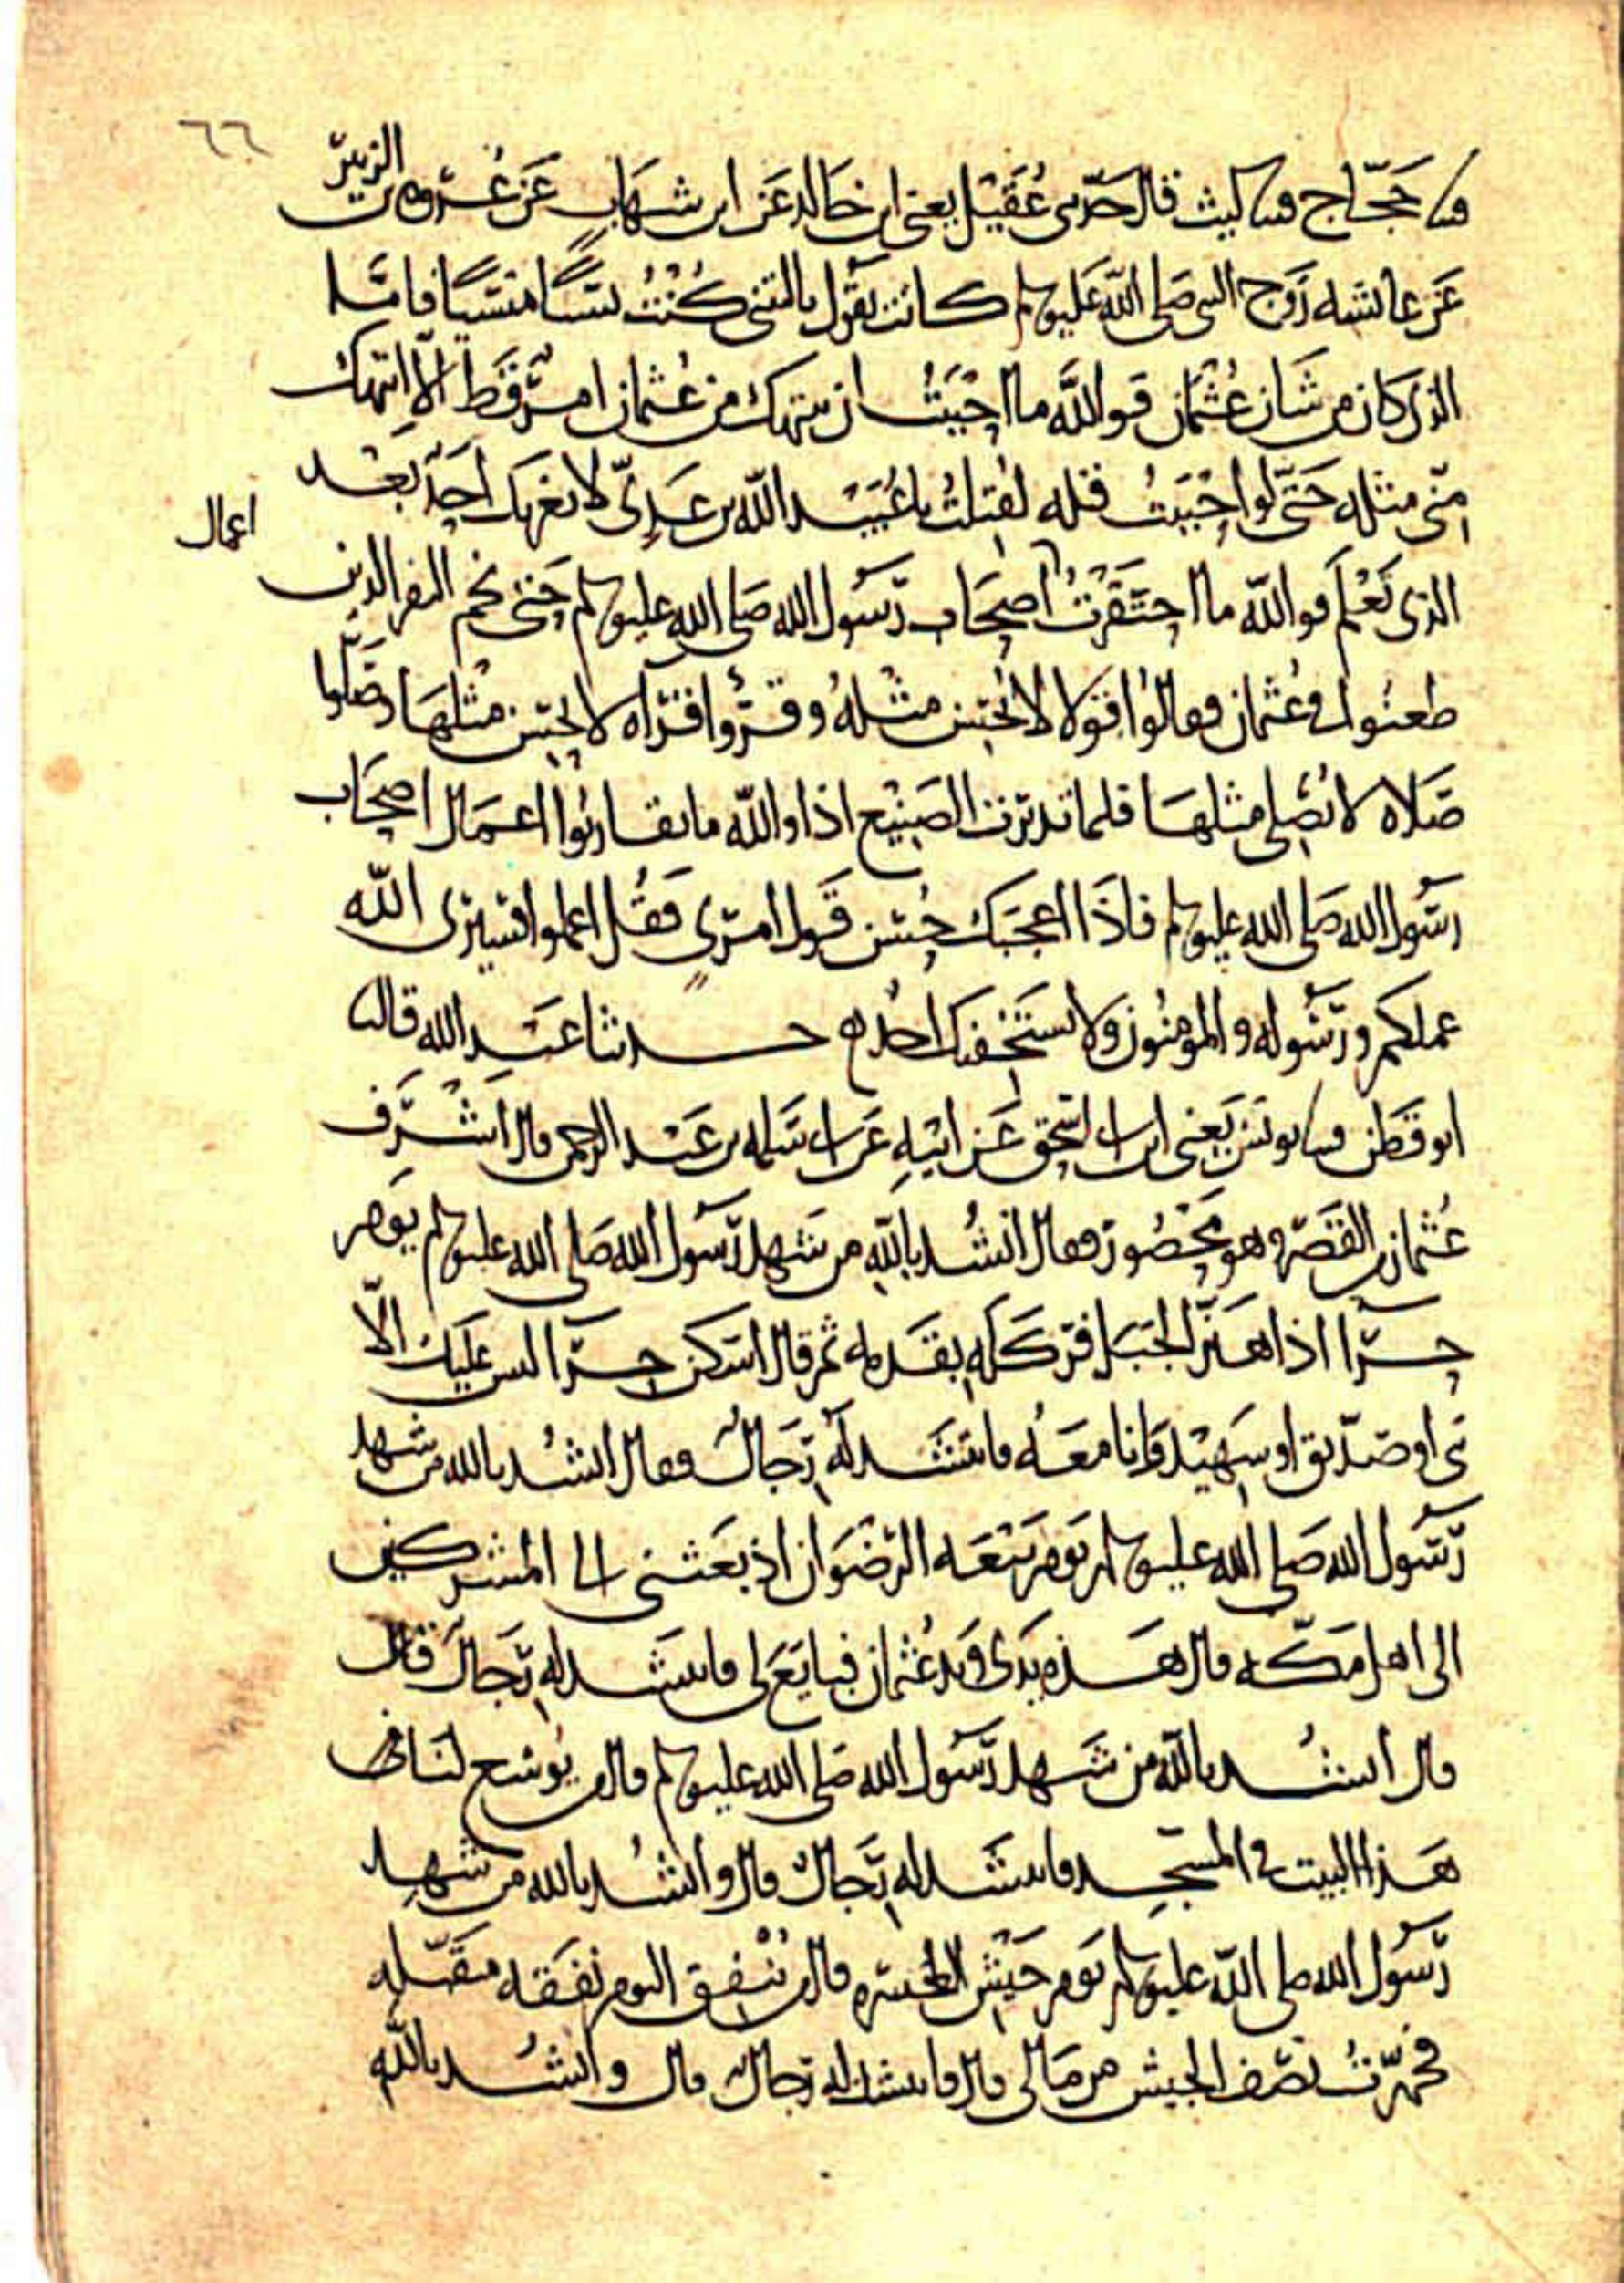 ٦٦
ثنا حجاج قثنا ليث قال حدثنى عُقَيْل يعنى ابن خالد عَن ابن شهاب عَن عُروه بن الزبير
عَن عائشه زَوج النبى صَلى الله عَليه وسلم كانت تقول يا ليتنى كُنْتُ نسيًا منسيًا فاما
الذى كان من شان عُثمان فوالله ما احبَبتُ ان ينتهك من عُثمان امر قَط الا انتهك
مِنى مثله حَتى لو احْبَبتُ قتله لقُتِلتُ يا عُبَيْد الله بن عَدِىّ لا يغرنك احَد بَعْد
الذى تَعْلَم فوالله ما احتَقَرْتُ اصحَاب رسول الله صَلى الله عليه وسلم حَتى نجم النفر الذين
اعمال
طعنُوا فى عُثمان فقالوُا قولا لا نُحسِن مثلهُ وقرؤا قراه لا نحسن مثلهَا وصَلوا
صَلاه لا نُصلى مثلهَا فلما تدبرت الصَنِيْع اذا والله ما تقاربُوا اعمَال اصحَاب
رسُول الله صَلى الله عليه وسلم فاذَا اعجَبَك حُسْن قَول امرىٍ فقُل اعملوا فسيرى الله
عملكم ورسُوله والمومنُون ولا يستَخفنك احَد حدثنا عَبد الله قال ثنا
ابو قَطَن قثنا يونس يَعنى ابن ابى اسحق عَن ابيْهِ عَن ابى سَلمه بن عَبْد الرحمن قال اشْرَف
عُثمان من القَصْر وهو مَحْصُور فقال انشُد بالله من شَهد رَسول الله صَلى الله عليه وسلم يوم
حِرَا اذ اهتَز الجَبَل فركَله بقَدمه ثم قال اسكن حِرَا ليس عَليك الا
نبى او صدّيق او شهيْد وَانا معَهُ فانتَشَد لهُ رجَالٌ فقال انشُد بالله من شهد
رَسُول الله صَلى الله عليه وسلم يوم بَيعَه الرضوَان اذ بعَثنى الى المشركين
الى اهل مَكّه قال هَذه يَدى وَيد عُثمان فبايَع لى فانتشَد له رجَال قال
قال انشُد بالله من شَهد رَسول الله صَلى الله عليه وسلم قال من يُوسع لنَا فى
هَذا البيت فى المسجِد فانتشَد له رجَالٌ قال وانشُد بالله من شهِد
رَسُول الله صلى الله عليه وسلم يَوم جَيْش العُسره قال من يُنْفِق اليوم نفَقه متقَبله
فجَهّزتُ نصف الجيش من مَالى قال فانتشد له رجالٌ قال وانشُد بالله